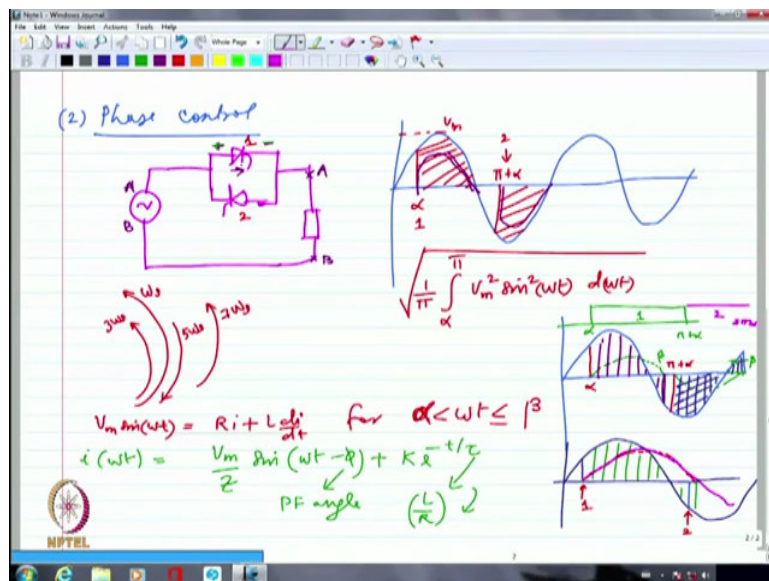 Note1 - Windows Journal
File Edit View Insert Actions Tools Help
Whole Page
B I
(2) Phase control
+ 1 -
A
B
2
A
B
Vm
2
π+α
α
1
√ 1/π ∫ α π Vm² sin²(ωt) d(ωt)
ωs
3ωs
5ωs
7ωs
1
2
α
π+α
β
α
π+α
β
Vm sin(ωt) = Ri + L di/dt for α < ωt ≤ β
i(ωt) = Vm/Z sin(ωt - φ) + K e^-t/τ
PF angle
(L/R)
1
2
NPTEL
2 / 2